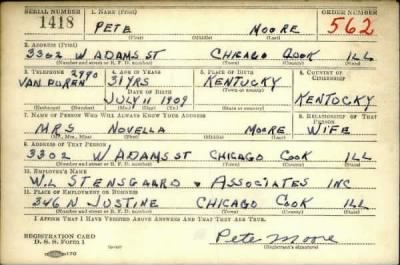 SERIAL NUMBER 1. NAME (Print) ORDER NUMBER
1418 PETE MOORE 562
(First) (Middle) (Last)
2. ADDRESS (Print)
3302 W ADAMS ST CHICAGO COOK ILL
(Number and street or R. F. D. number) (Town) (County) (State)
3. TELEPHONE 4. AGE IN YEARS 5. PLACE OF BIRTH 6. COUNTRY OF CITIZENSHIP
2990 31 YRS KENTUCKY
VAN BUREN DATE OF BIRTH (Town or county)
JULY 11 1909 KENTUCKY
(Exchange) (Number) (Mo.) (Day) (Yr.) (State or country)
7. NAME OF PERSON WHO WILL ALWAYS KNOW YOUR ADDRESS 8. RELATIONSHIP OF THAT PERSON
MRS NOVELLA MOORE WIFE
(Mr., Mrs., Miss) (First) (Middle) (Last)
9. ADDRESS OF THAT PERSON
3302 W ADAMS ST CHICAGO COOK ILL
(Number and street or R. F. D. number) (Town) (County) (State)
10. EMPLOYER'S NAME
W.L STENSGAARD & ASSOCIATES INC
11. PLACE OF EMPLOYMENT OR BUSINESS
346 N JUSTINE CHICAGO COOK ILL
(Number and street or R. F. D. number) (Town) (County) (State)
I AFFIRM THAT I HAVE VERIFIED ABOVE ANSWERS AND THAT THEY ARE TRUE.
REGISTRATION CARD
D. S. S. Form 1 Pete Moore
(Registrant's signature)